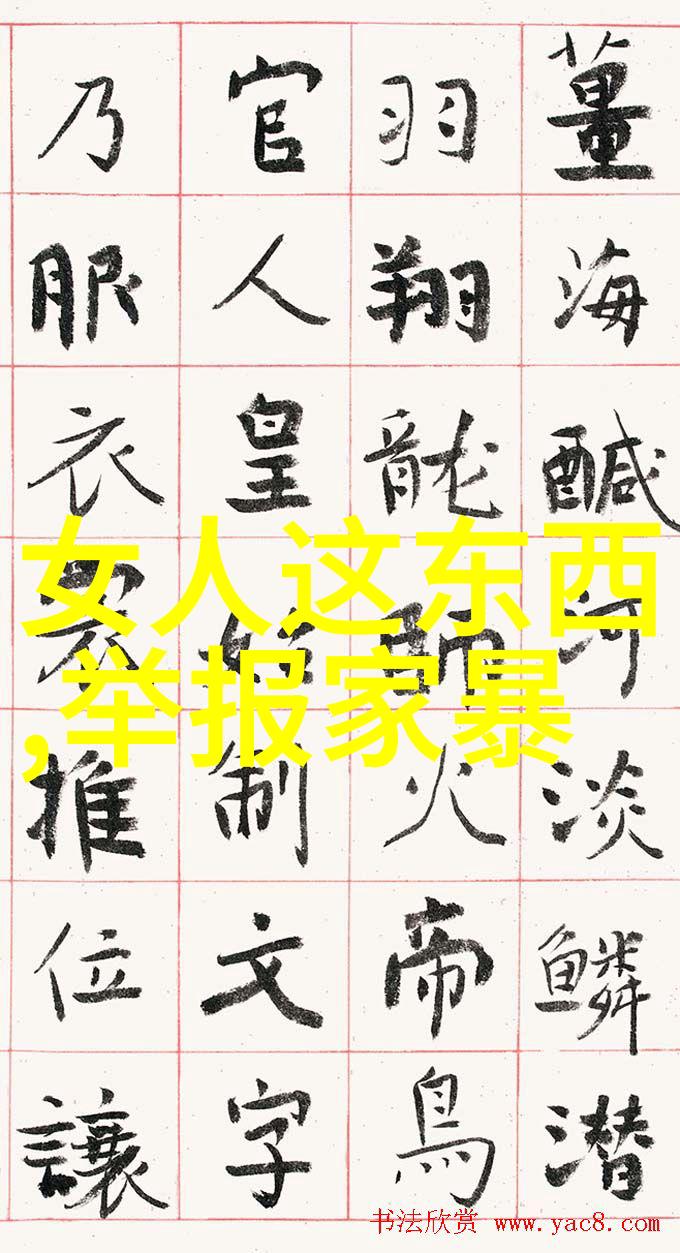 薑海鹹河淡鱗潛
羽翔龍師火帝鳥
官人皇始制文字
乃服衣裳推位讓
女人这东西
,举报家暴
书法欣赏 www.yac8.com